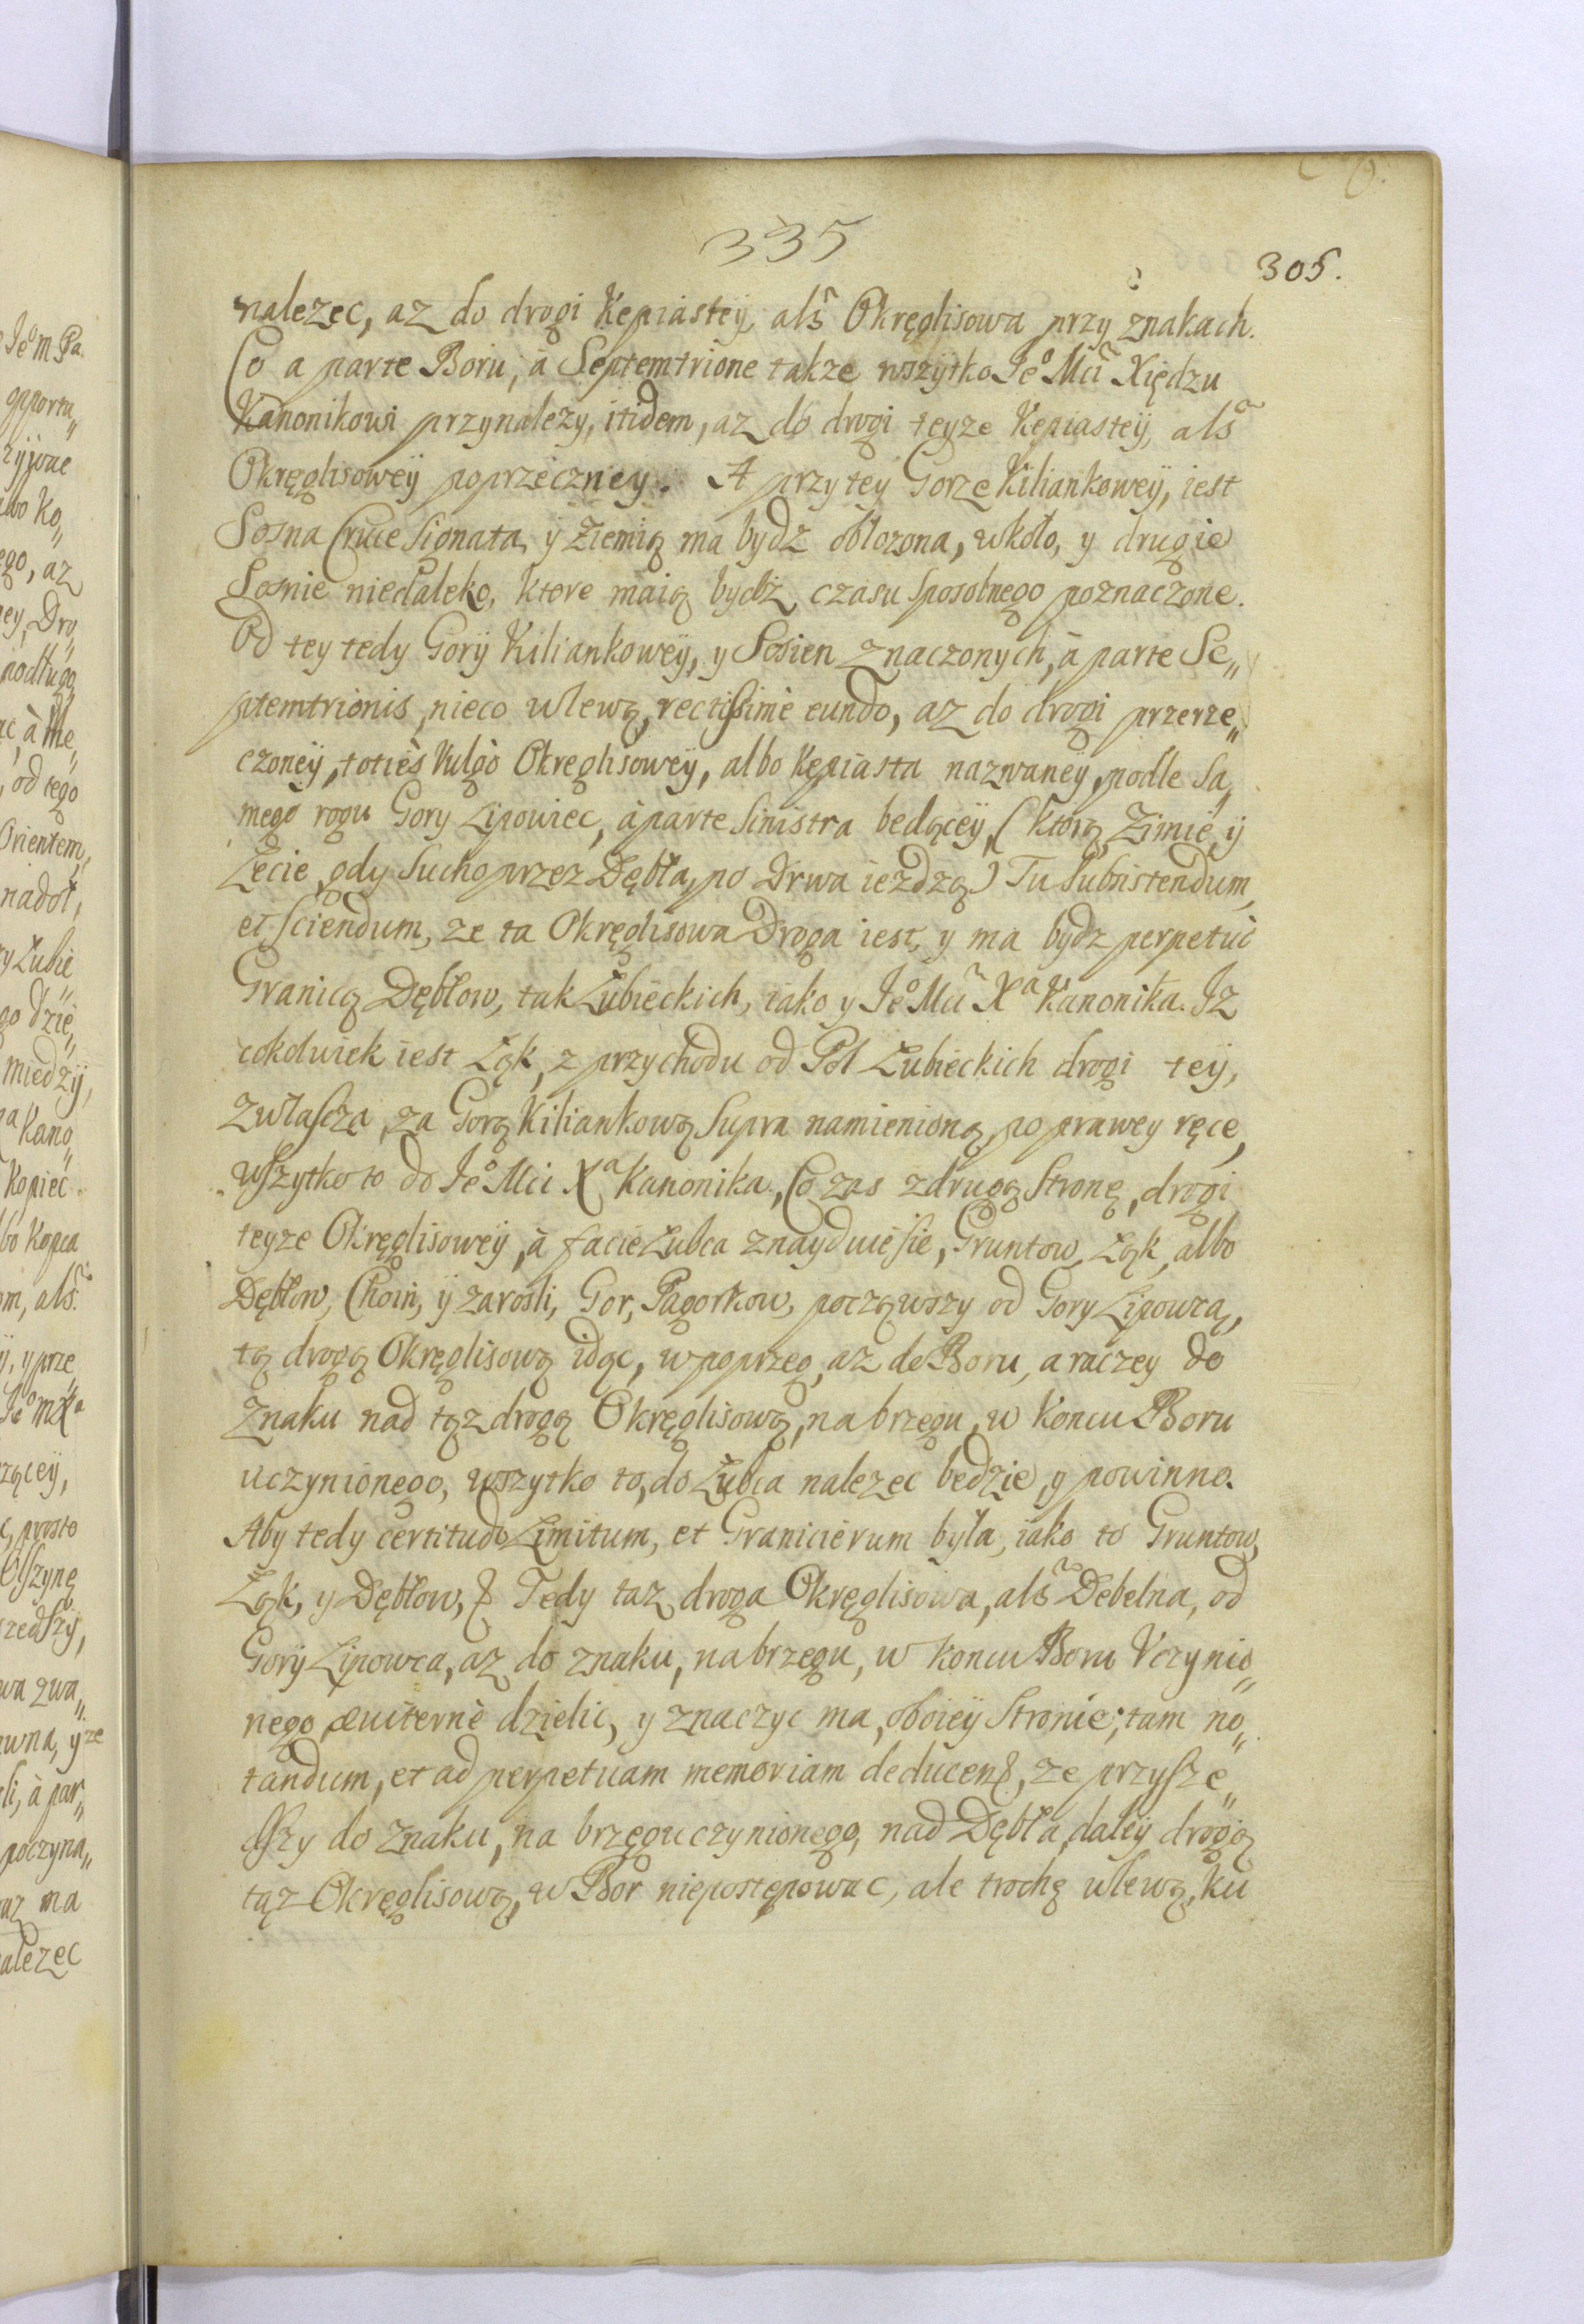 335
305.
nalezec, az do drogi Kępiastey, als̃ Okręglisowa przy znakach.
Co a parte Boru, à Septemtrione takze wszytko Jeº Mci Xiędzu
Kanonikowi przynalezy, itidem, az do drogi teyze Kępiastey, als̃
Okręglisoweÿ poprzeczney. A przy tey Gorze Kiliankoweÿ, iest
Sosna Cruce Signata, ÿ ziemią ma bydz obłozona, wkoło, y drugie
Sosnie niedaleko, ktore maią bydz, czasu sposobnego poznaczone.
Od tey tedy Gorÿ Kiliankoweÿ, y Sosien znaczonych, à parte Se„
ptemtrionis, nieco wlewą, rectissimè eundo, az do drogi przerze„
czoneÿ, totiès Vulgò Okręglisoweÿ, albo Kępiasta nazwaneÿ, podle sa„
mego rogu Gory Lipowiec, à parte sinistra bedąceÿ, (ktorą Zimie, ÿ
Lecie, gdy sucho przez Dębła, po Drwa iezdzą) Tu subsistendum,
et sciendum, ze ta Okręglisowa Droga iest, y ma bydz perpetuò
Granicą Dębłow, tak Łubieckich, iako y Jeº Mci Xª Kanonika. Iz
cokolwiek iest Łąk, z przychodu od Pol Łubieckich drogi teÿ,
zwłascza, za Gorą Kiliankową supra namienioną, po prawey ręce,
wszytko to do Jeº Mci Xª Kanonika, Co zas zdrugą stronę, drogi
teyze Okręglisoweÿ, à facie Łubca znayduie sie, Gruntow, Łąk, albo
Dębłow, Choin, ÿ zarosli, Gor, Pagorkow, począwszy od Gory Lipowca,
tą drogą Okręglisową idąc, wpoprzeg, az do Boru, a raczey do
Znaku nad tąz drogą Okręglisową, na brzegu, w Koncu Boru
uczynionego, wszytko to, do Łubca nalezec bedzie, y powinno.
Aby tedy certitudo Limitum, et Granicierum była, iako to Gruntow,
Łąk, y Dębłow, & Tedy taz droga Okręglisowa, als̃ Debelna, od
Gorÿ Lipowca, az do znaku, na brzegu, w koncu Boru Vczynio„
nego, æviternè dzielic, y znaczyc ma, oboieÿ Stronie; tam no„
tandum, et ad perpetuam memoriam deducend, ze przysze„
dszy do znaku, na brzegu czynionego, nad Dębła, daleÿ drogą
tąz Okręglisową, w Bor niepostępowac, ale trochę wlewą, ku